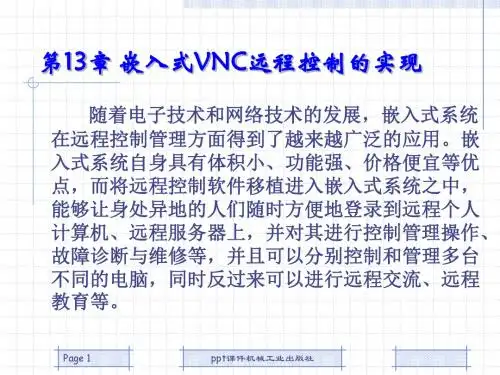 第13章 嵌入式VNC远程控制的实现
随着电子技术和网络技术的发展，嵌入式系统
在远程控制管理方面得到了越来越广泛的应用。嵌
入式系统自身具有体积小、功能强、价格便宜等优
点，而将远程控制软件移植进入嵌入式系统之中，
能够让身处异地的人们随时方便地登录到远程个人
计算机、远程服务器上，并对其进行控制管理操作、
故障诊断与维修等，并且可以分别控制和管理多台
不同的电脑，同时反过来可以进行远程交流、远程
教育等。
Page 1
ppt课件机械工业出版社